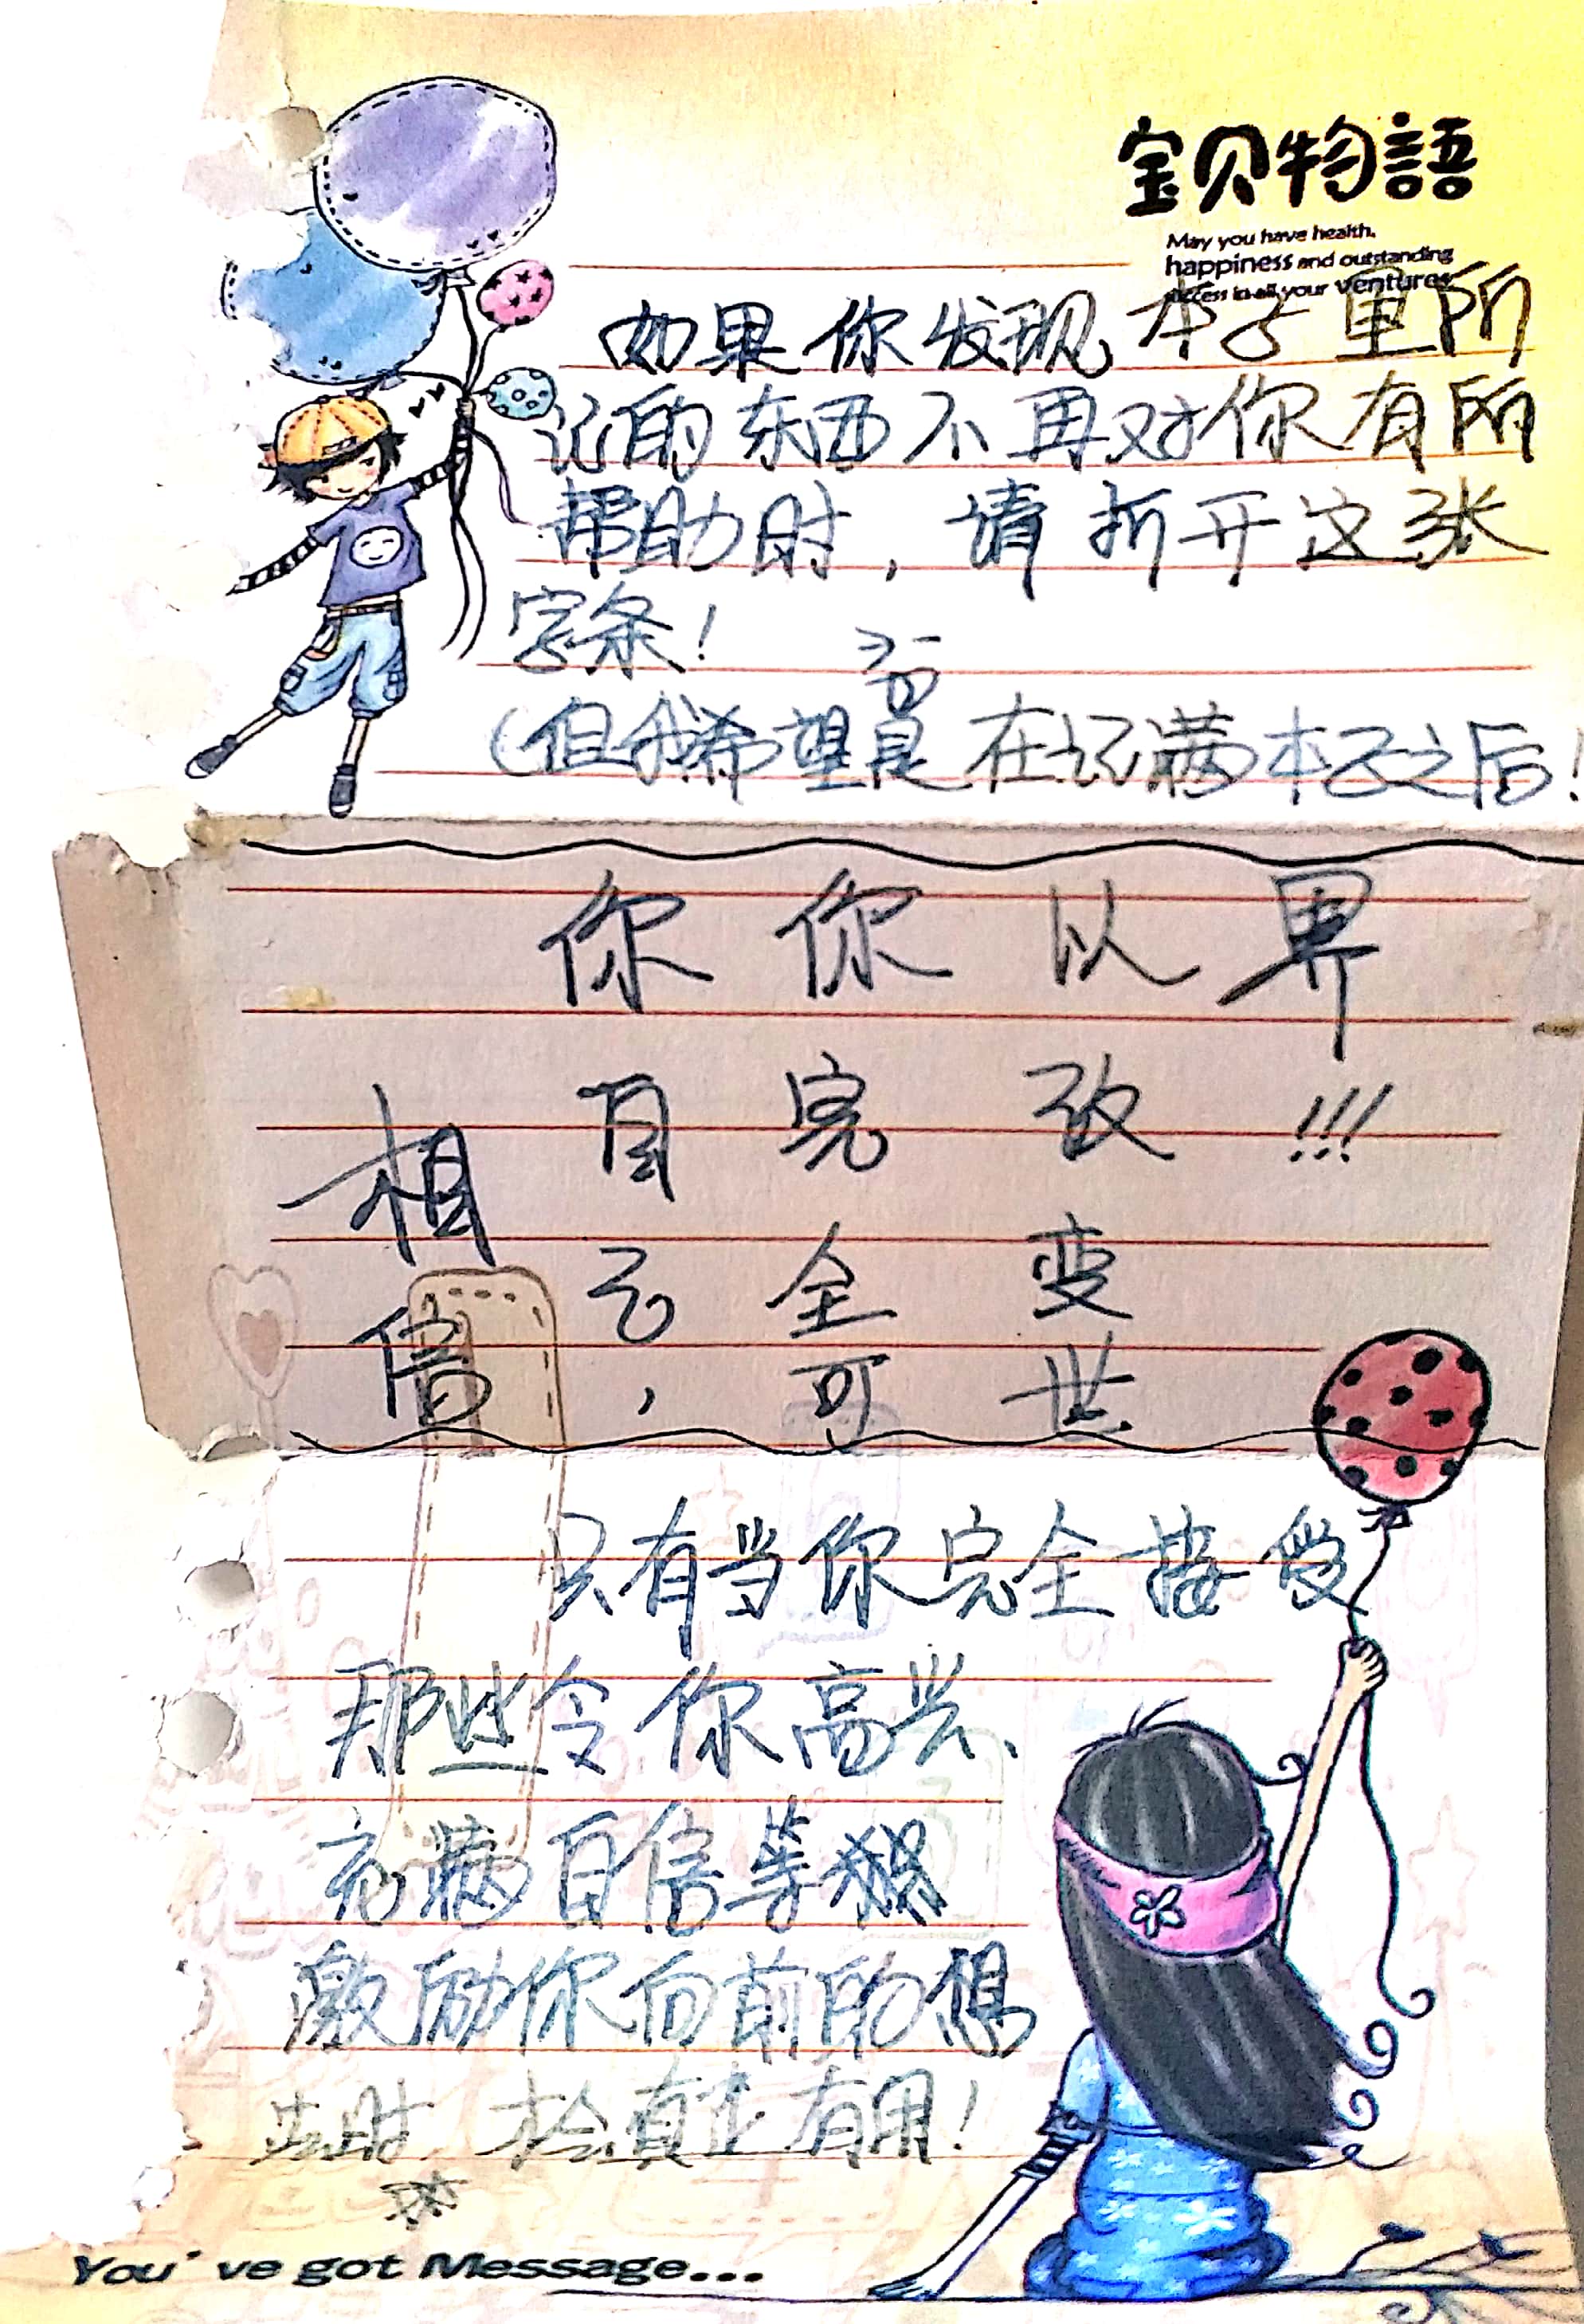 宝贝物語
May you have health,
happiness and outstanding
success in all your ventures
如果你发现本子里所
记的东西不再对你有所
帮助时，请折开这张
字条！
(但我希望是在记满本子之后！
相信
你自己，
你完全可
以改变世
界!!!
只有当你完全接受
那些令你高兴、
充满自信等
激励你向前的想
法时，才会真正有用！
You've got Message...